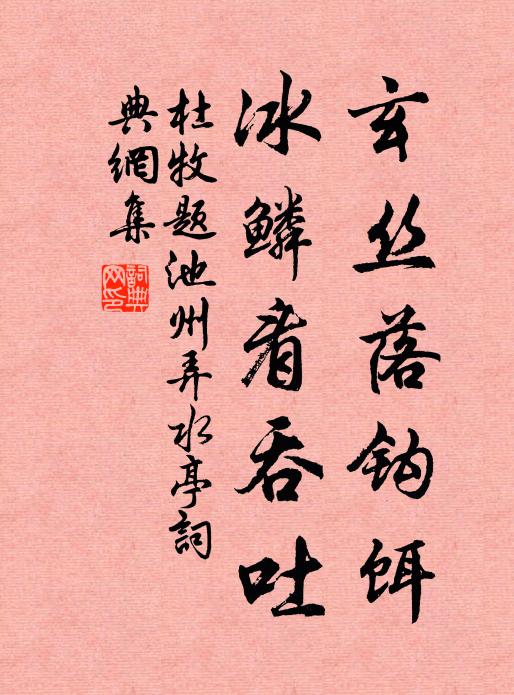 玄丝落钩饵
冰鳞看吞吐
杜牧题池州弄水亭詞
典網集
詞典網印